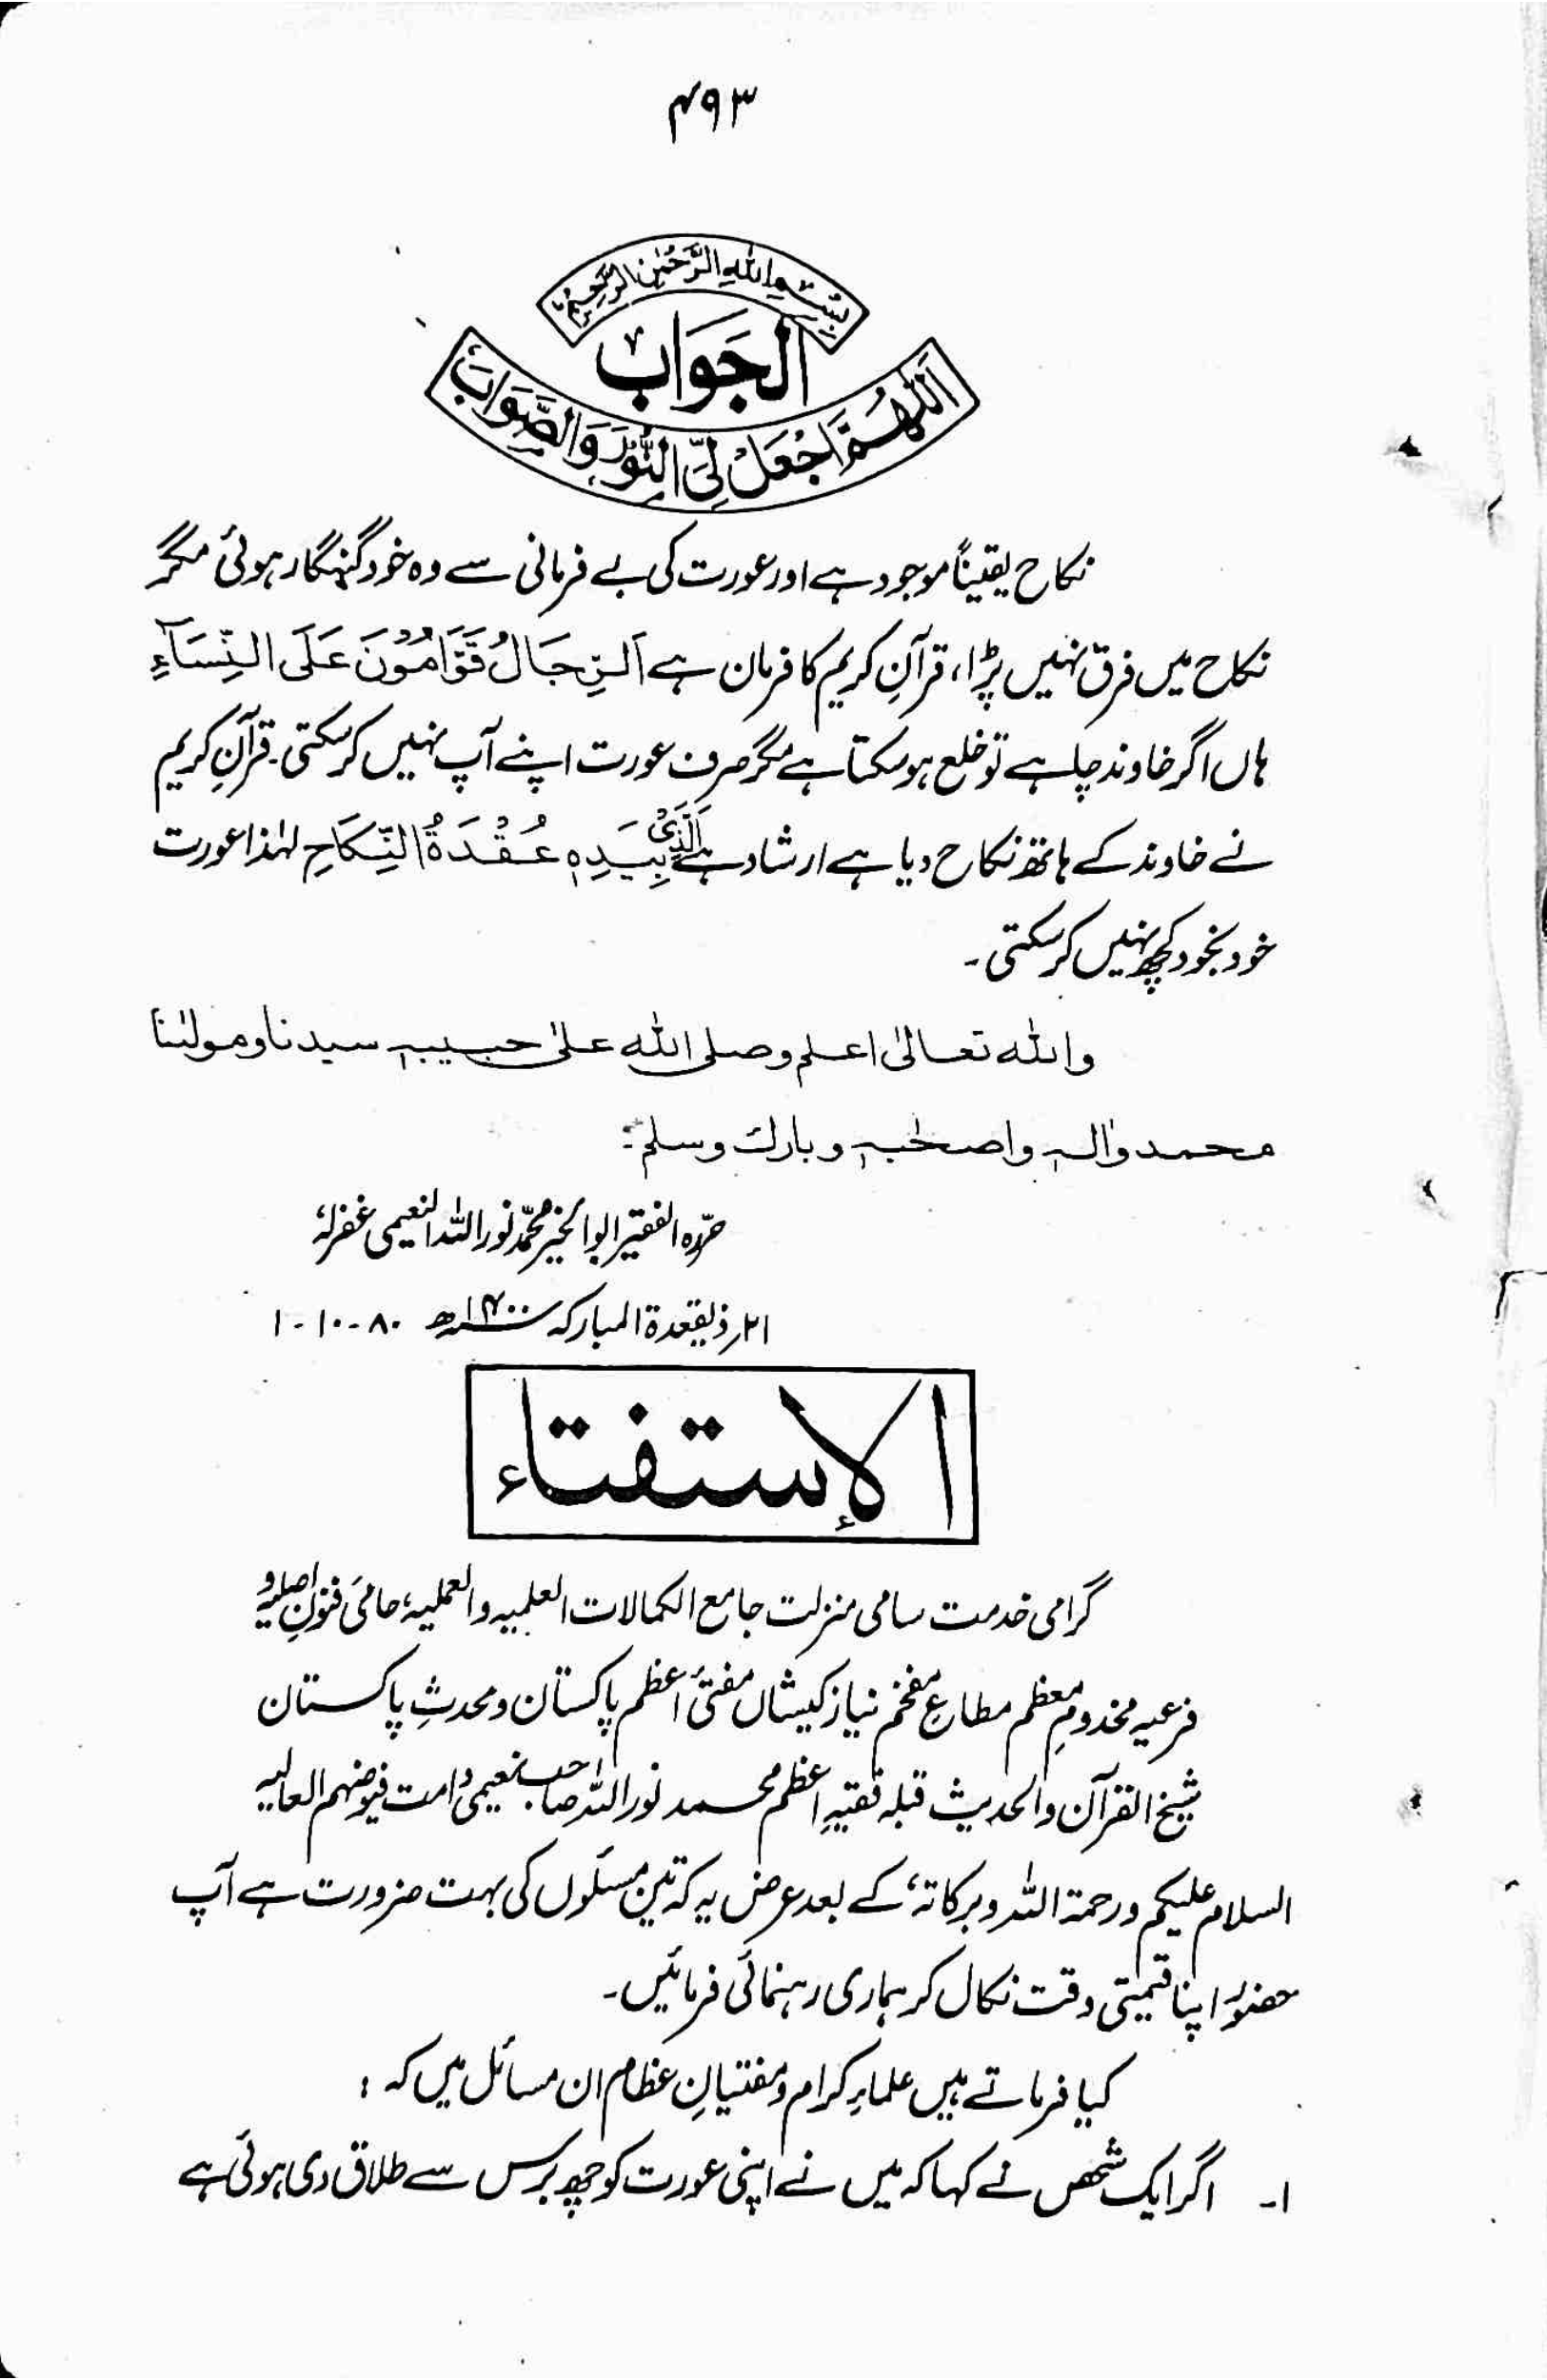 ۴۹۳
بِسْمِ اللهِ الرَّحْمٰنِ الرَّحِيْمِ
الجَوَابُ
اَللّٰهُمَّ اجْعَلْ لِّیَ النُّوْرَ وَالصَّوَابَ
نکاح یقیناً موجود ہے اور عورت کی بے فرمانی سے وہ خود گنہگار ہوئی مگر
نکاح میں فرق نہیں پڑا، قرآنِ کریم کا فرمان ہے اَلرِّجَالُ قَوَّامُوْنَ عَلَى النِّسَآءِ
ہاں اگر خاوند چاہے تو خلع ہو سکتا ہے مگر صرف عورت اپنے آپ نہیں کر سکتی۔ قرآنِ کریم
نے خاوند کے ہاتھ نکاح دیا ہے ارشاد ہے اَلَّذِیْ بِیَدِهٖ عُقْدَةُ النِّكَاحِ لہٰذا عورت
خود بخود کچھ نہیں کر سکتی۔
والله تعالىٰ اعلم وصلى الله علىٰ حبيبهٖ سيدنا ومولٰنا
محمد وٰالهٖ واصحٰبهٖ وبارك وسلم۔
حرّرہ الفقیر ابوالخیر محمّد نور اللہ النعیمی غفرلہٗ
۲۱؍ ذیقعدة المبارکہ ۱۴۰۰ھ ۸۰-۱۰-۱
الإستفتاء
گرامی خدمت سامی منزلت جامع الکمالات العلمیہ والعملیہ، حامیٔ فنونِ اصلیہ و
فرعیہ مخدومِ معظم مطاعِ مفخم نیاز کیشاں مفتیٔ اعظم پاکستان و محدثِ پاکستان
شیخ القرآن والحدیث قبلہ فقیہِ اعظم محمد نور اللہ صاحب نعیمی دامت فیوضہم العالیہ
السلام علیکم ورحمۃ اللہ وبرکاتہٗ کے بعد عرض یہ کہ تین مسئلوں کی بہت ضرورت ہے آپ
حضور اپنا قیمتی وقت نکال کر ہماری رہنمائی فرمائیں۔
کیا فرماتے ہیں علماءِ کرام و مفتیانِ عظام ان مسائل میں کہ :
۱۔ اگر ایک شخص نے کہا کہ میں نے اپنی عورت کو چھ برس سے طلاق دی ہوئی ہے